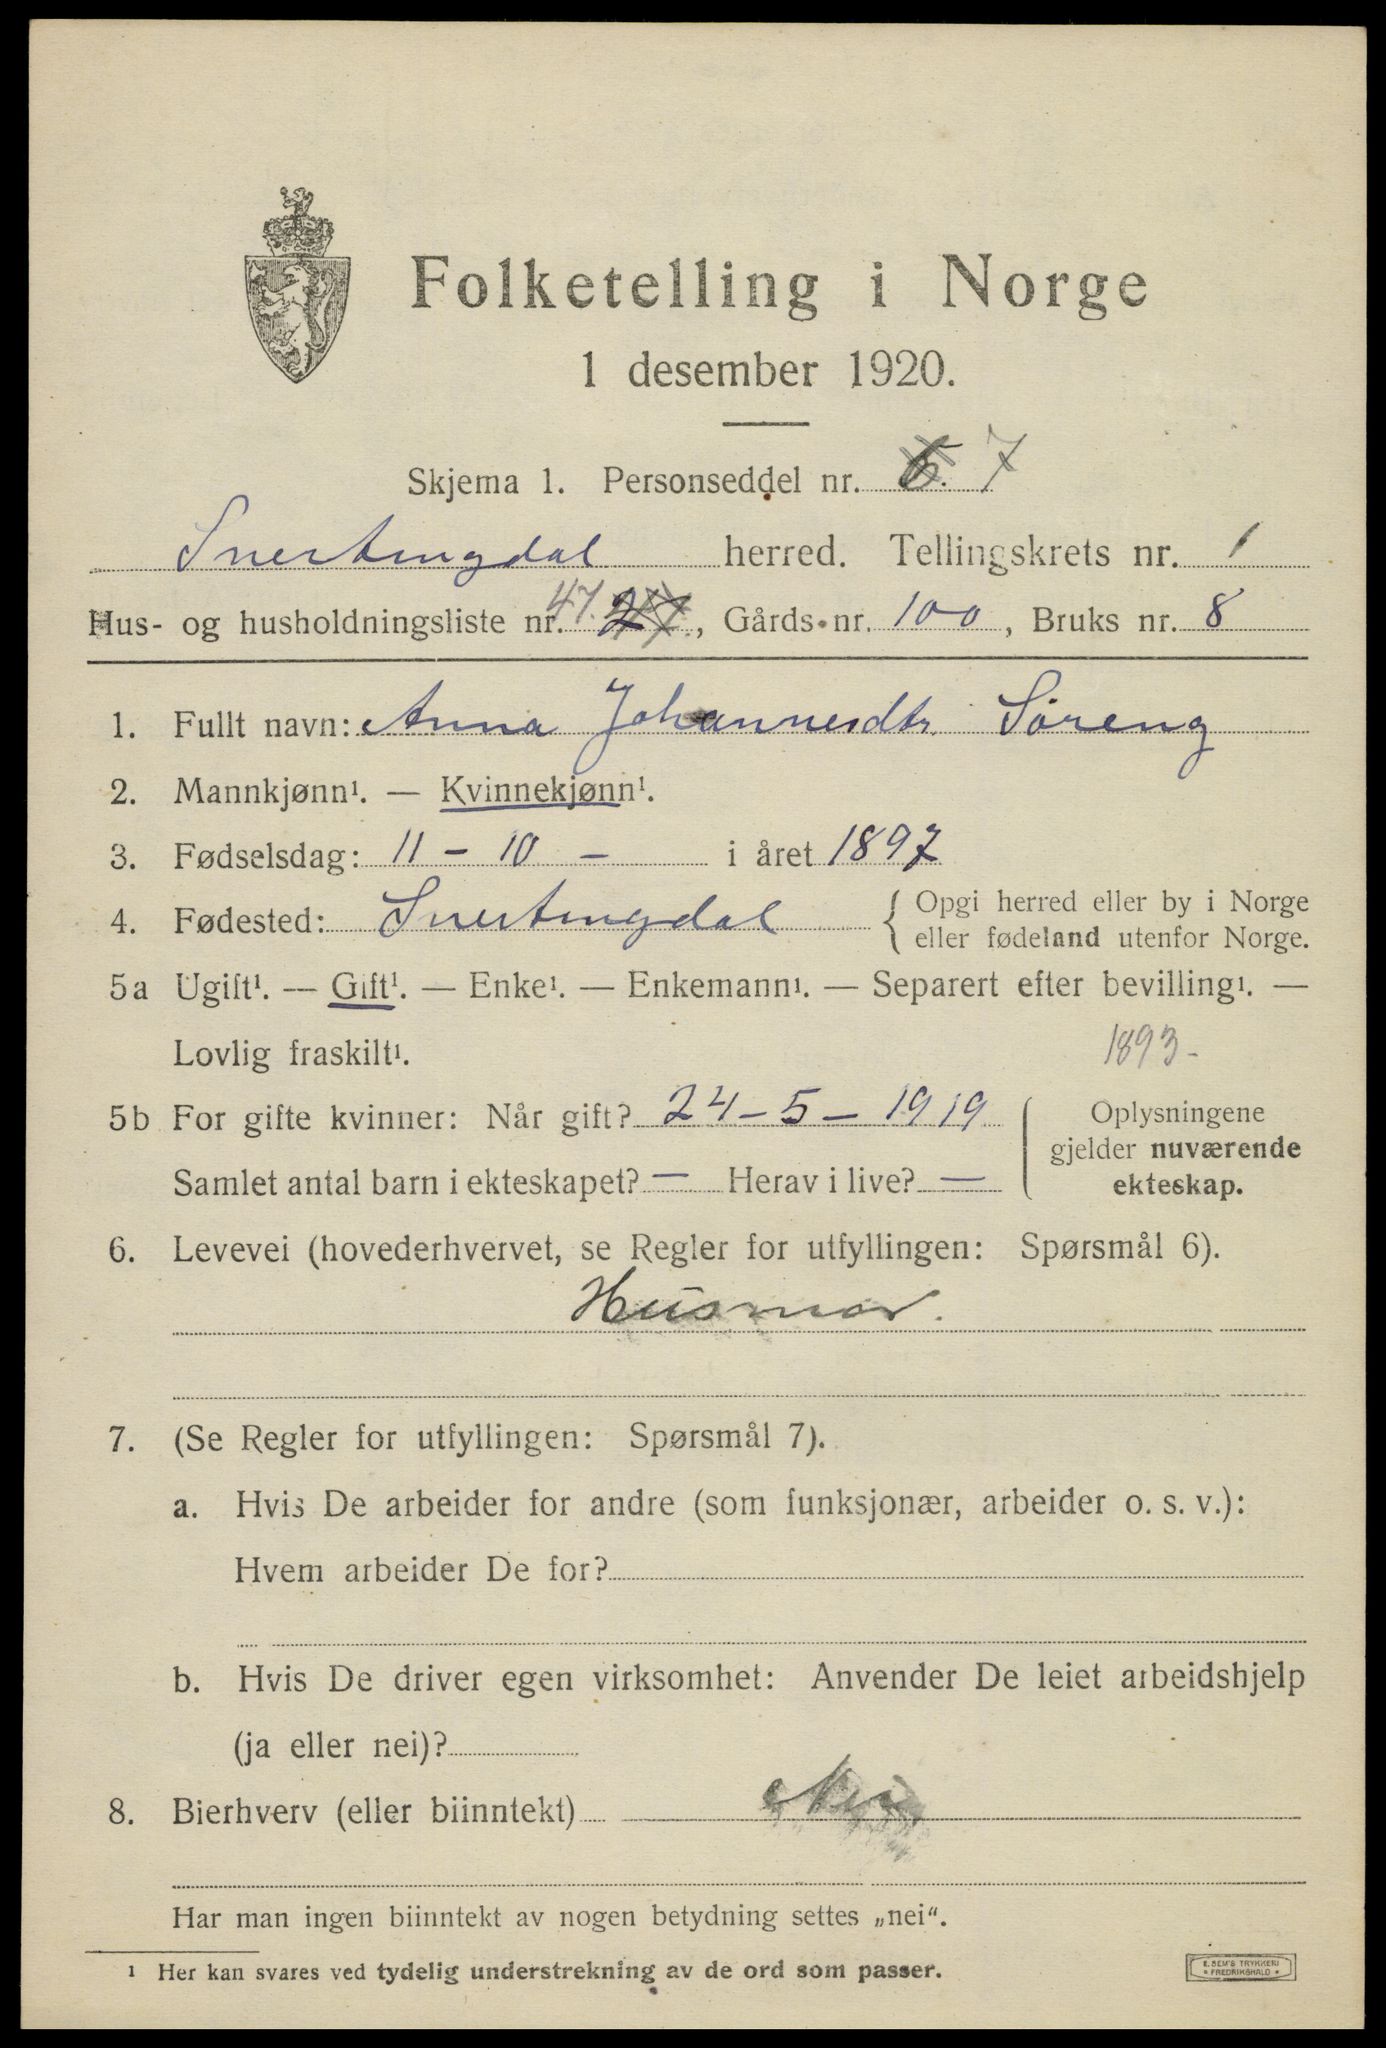 Folketelling i Norge
1 desember 1920.
Skjema 1. Personseddel nr. 6. 7
Snertingdal herred. Tellingskrets nr. 1
Hus- og husholdningsliste nr. 47. 27, Gårds-nr. 100, Bruks nr. 8
1. Fullt navn: Anna Johannesdtr. Söreng
2. Mannkjønn¹. — Kvinnekjønn¹.
3. Fødselsdag: 11 - 10 - i året 1897
4. Fødested: Snertingdal { Opgi herred eller by i Norge
eller fødeland utenfor Norge.
5a Ugift¹. — Gift¹. — Enke¹. — Enkemann¹. — Separert efter bevilling¹. —
Lovlig fraskilt¹. 1893-
5b For gifte kvinner: Når gift? 24-5-1919 Oplysningene
gjelder nuværende
Samlet antal barn i ekteskapet? — Herav i live? — ekteskap.
6. Levevei (hovederhvervet, se Regler for utfyllingen: Spørsmål 6).
Husmor.
7. (Se Regler for utfyllingen: Spørsmål 7).
a. Hvis De arbeider for andre (som funksjonær, arbeider o. s. v.):
Hvem arbeider De for?
b. Hvis De driver egen virksomhet: Anvender De leiet arbeidshjelp
(ja eller nei)?
8. Bierhverv (eller biinntekt) Nei
Har man ingen biinntekt av nogen betydning settes „nei“.
¹ Her kan svares ved tydelig understrekning av de ord som passer.
E. SEM'S TRYKKERI
• FREDRIKSHALD •